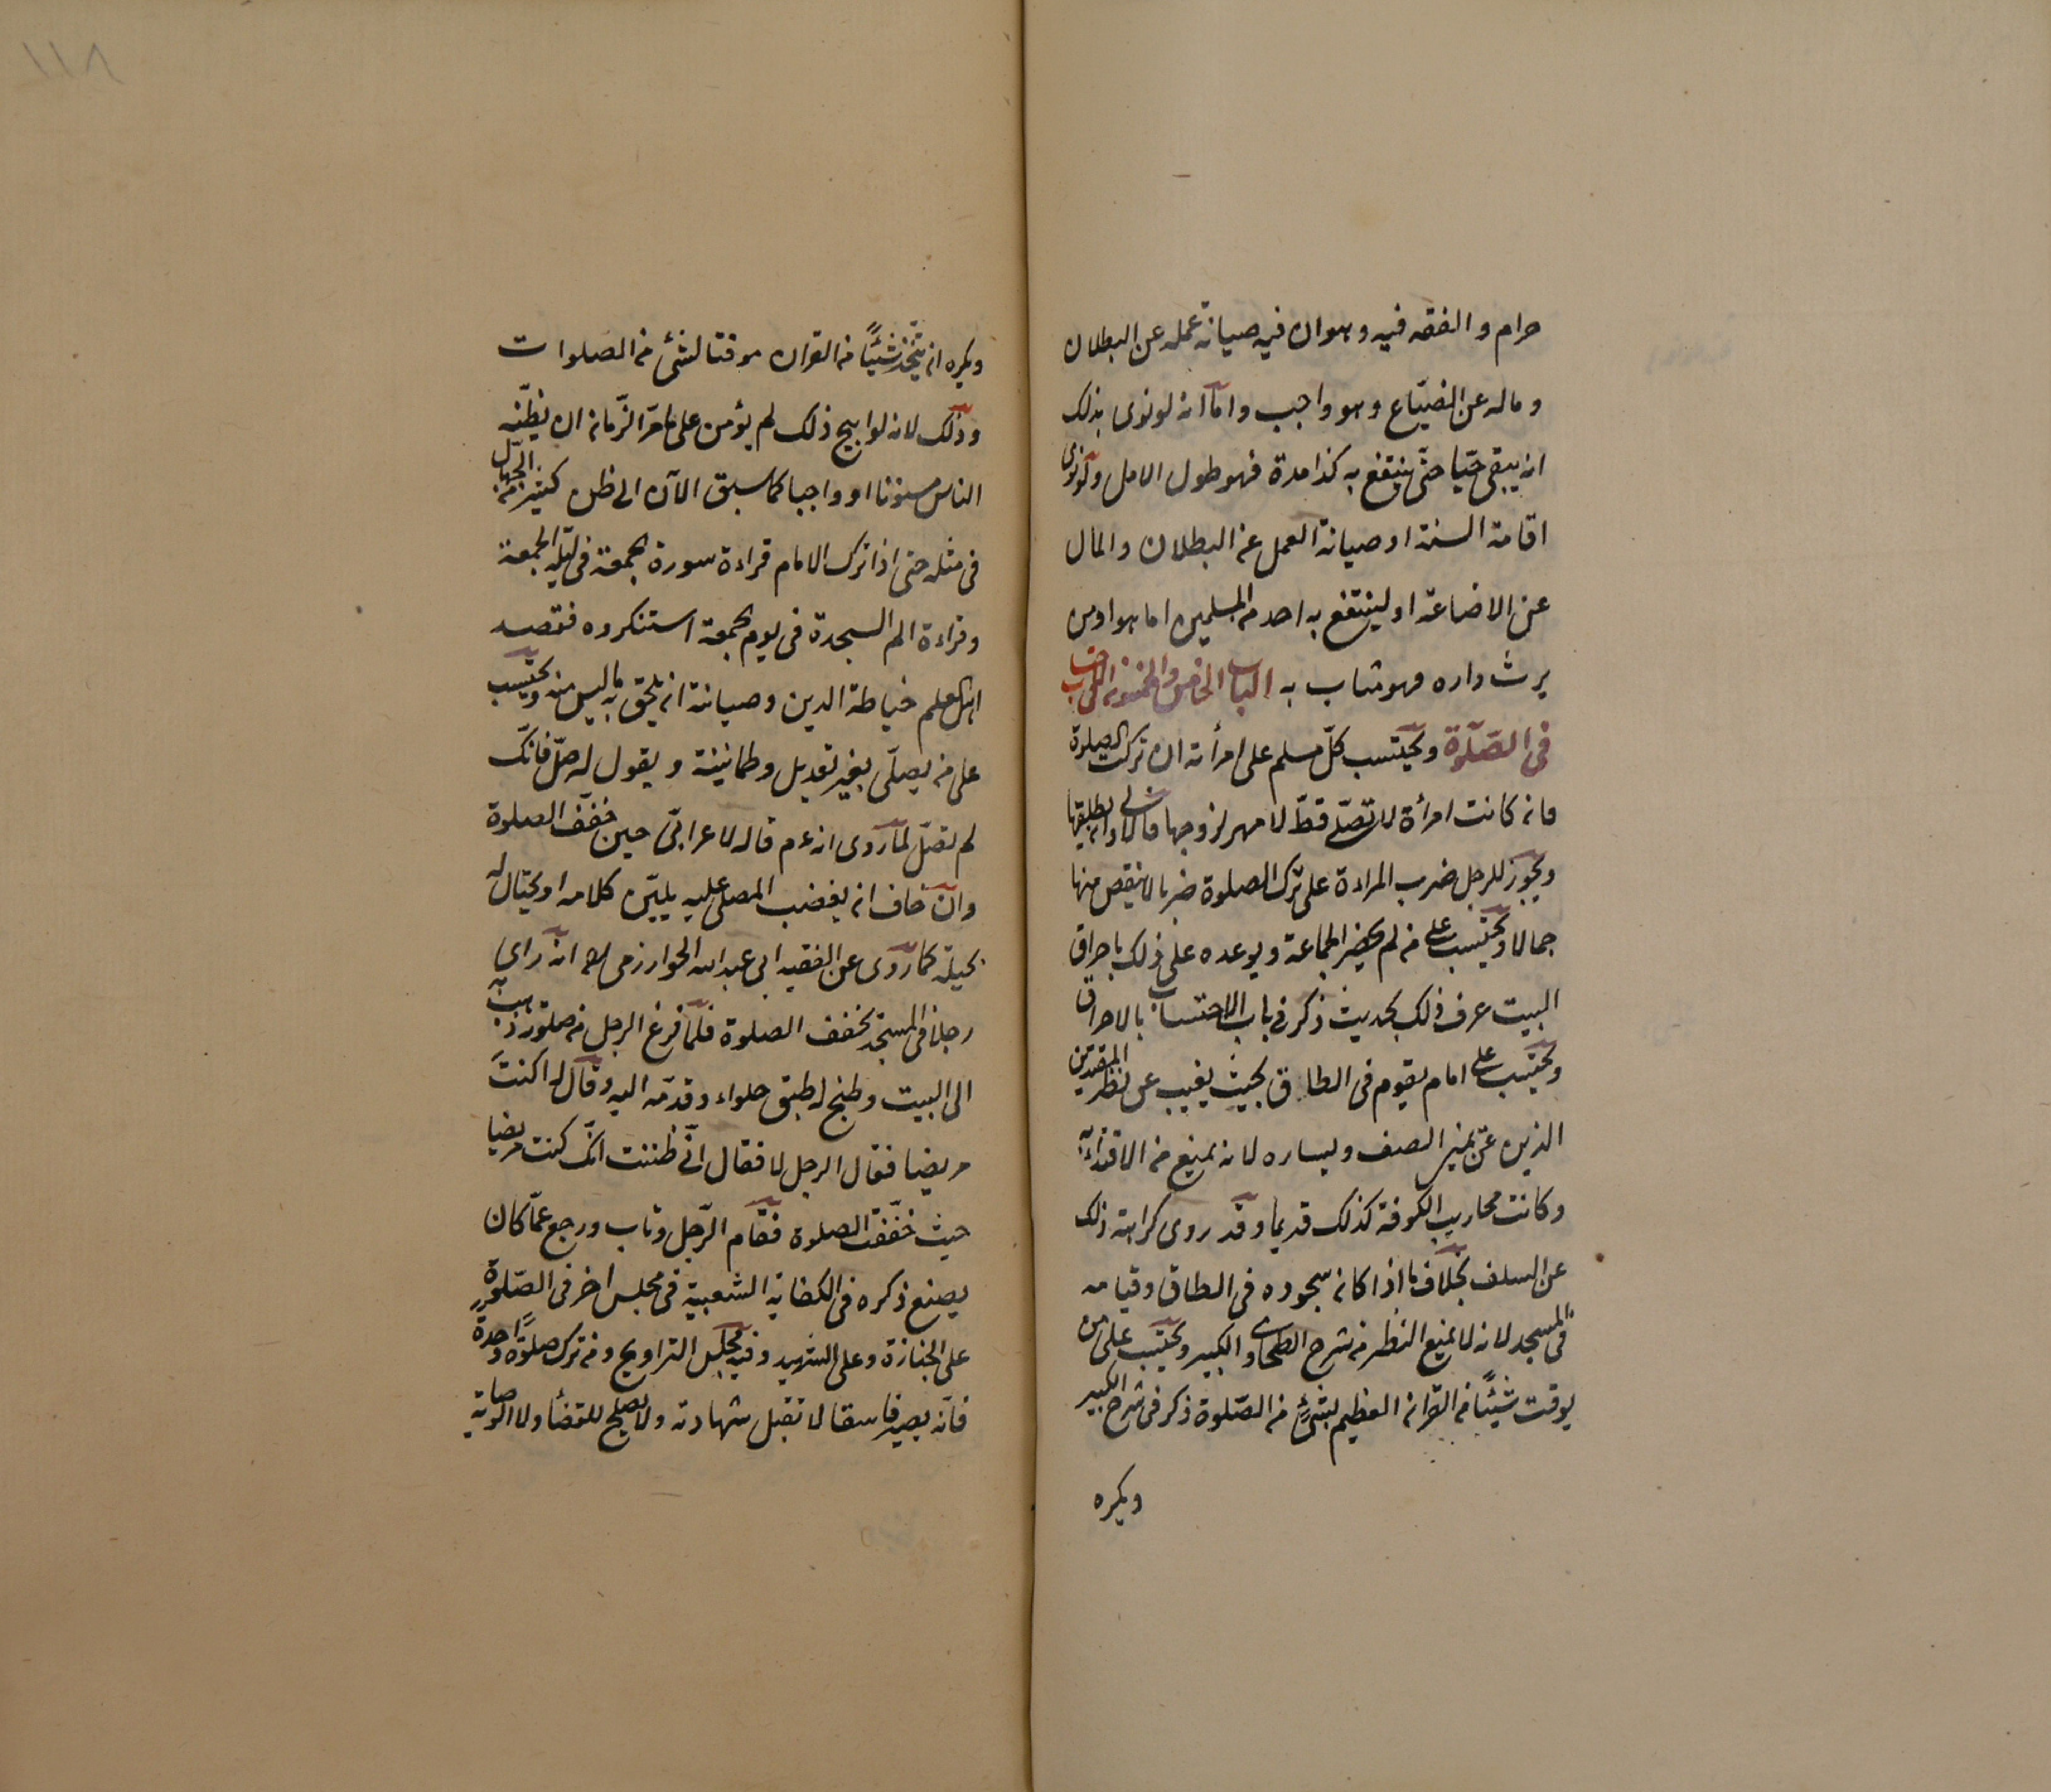 حرام والفقه فيه وهوان فيه صيانة عمله عن البطلان
وماله عن الضيّاع وهو واجب واما انه لونوى بذلك
انه يبقى حيّا حتّى ينتفع به كذا مدة فهو طول الامل ولونوى
اقامة السنة او صيانة العمل عن البطلان والمال
عن الاضاعة او لينتفع به احد من المسلمين اما هو او من
يرث داره فهو مثاب به الباب الخامس والخمسون الاحتساب
فى الصّلوة ويحتسب كلّ مسلم على امرأته ان تركت الصلوة
فانه كانت امرأة لا تصلّى قطّ لا مهر لزوجها فالاولى ان يطلقها
ويجوز للرجل ضرب المراءة على ترك الصلوة ضربا لا ينقص منها
جمالا ويحتسب على من لم يحضر الجماعة ويوعده على ذلك باحراق
البيت عرف ذلك بحديث ذكر فى باب الاحتساب بالاحراق
ويحتسب على امام يقوم فى الطاق بحيث يغيب عن نظر المقتدين
الذين عن يمين الصف ويساره لانه يمنع من الاقتداء به
وكانت محاريب الكوفة كذلك قديما وقد روى كراهة ذلك
عن السلف بخلاف ما اذا كانه سجوده فى الطاق وقيامه
فى المسجد لانه لا يمنع النظر من شرح الطحاوى الكبير ويحتسب على من
يوقت شيئًا من القرانه العظيم بشئ من الصّلوة ذكر فى شرح الكبير
ويكره
١١٨
ويكره ان يتّخذ شيئًا من القران موقتا لشئ من الصلوات
وذلك لانه لو ابيح ذلك لم يؤمن على مامرّ الزّمانه ان يظنّه
الناس مسنونا او واجبا كما سبق الآن الى ظن كثير من الجهّال
فى مثله حتى اذا ترك الامام قراءة سورة الجمعة فى ليلة الجمعة
وقراءة الم السجدة فى يوم الجمعة استنكروه فقصد
اهل العلم خياطة الدين وصيانته ان يلحق به ما ليس منه ويحتسب
على من يصلّى بغير تعديل وطمانينة ويقول له صلّ فانّك
لم تصلّ لما روى انه عم قاله لاعرابىّ حين خفّف الصلوة
وان خاف انه يغضب المصلى عليه يليّن كلامه او يحتال له
بحيلة كما روى عن الفقيه ابى عبد الله الخوارزمى انه راى
رجلا فى المسجد يخفف الصلوة فلمّا فرغ الرجل من صلوته ذهب به
الى البيت وطبخ له طبق حلواء وقدّمه اليه وقال له اكنت
مريضا فقال الرجل لا فقال انّى ظننت انّك كنت مريضا
حيث خفّفت الصلوة فقام الرّجل وتاب ورجع عمّا كان
يصنع ذكره فى الكفاية الشعبية فى مجلس اخر فى الصّلوة
على الجنازة وعلى الشهيد وفيه مجلس التراويح ومن ترك صلوة واحدة
فانّه يصير فاسقا لا تقبل شهادته ولا يصلح للقضأ ولا الوصاية